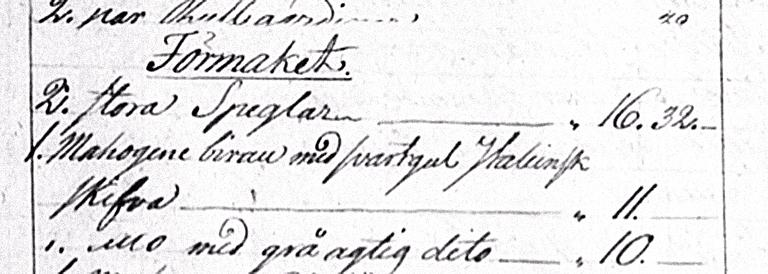 2. par
Förmaket.
2. stora Speglar — " 16. 32.—
1. Mahogene birau med svartgul Italiensk
skifva — " 11. —
1. dito med grå agtig dito — " 10. —